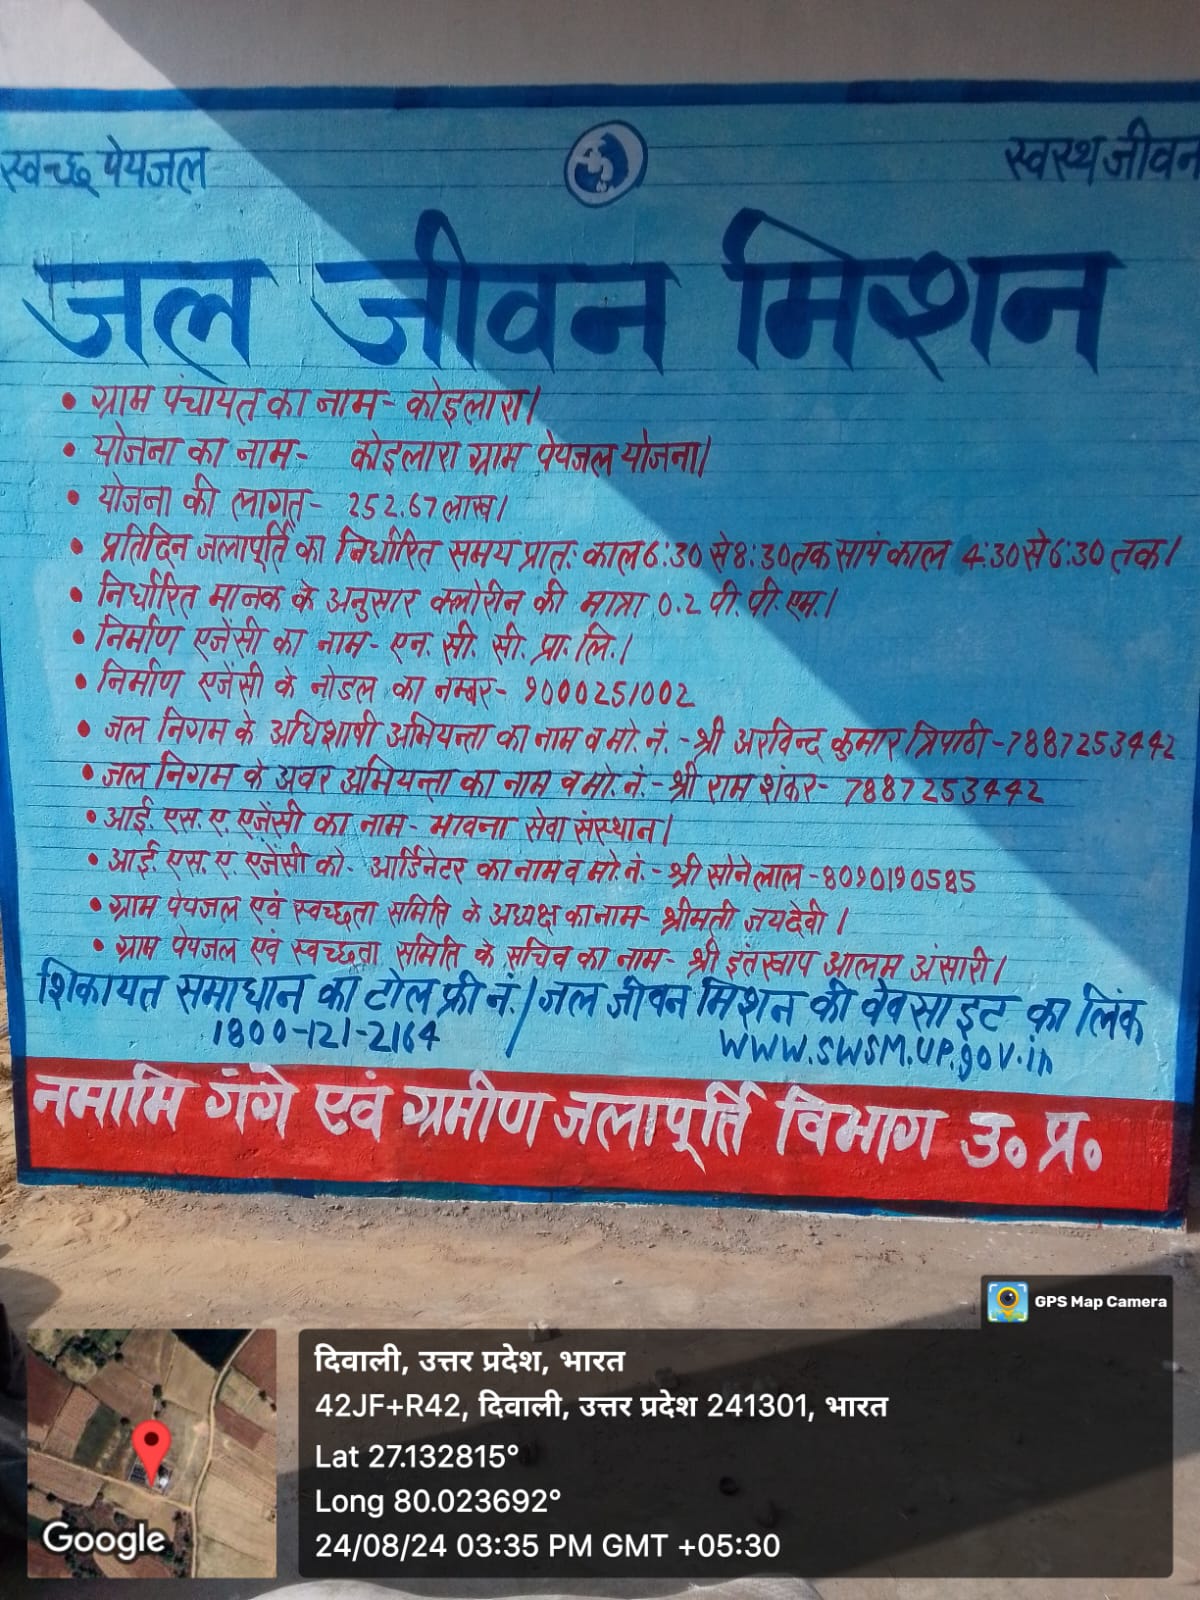 स्वच्छ पेयजल
स्वस्थ जीवन
जल जीवन मिशन
• ग्राम पंचायत का नाम- कोइलारा।
• योजना का नाम- कोइलारा ग्राम पेयजल योजना।
• योजना की लागत- 252.67 लाख।
• प्रतिदिन जलापूर्ति का निर्धारित समय प्रातः काल 6:30 से 8:30 तक सायं काल 4:30 से 6:30 तक।
• निर्धारित मानक के अनुसार क्लोरीन की मात्रा 0.2 पी. पी. एम.।
• निर्माण एजेंसी का नाम- एन. सी. सी. प्रा. लि.।
• निर्माण एजेंसी के नोडल का नम्बर- 9000251002
• जल निगम के अधिशाषी अभियन्ता का नाम व मो. नं. - श्री अरविन्द कुमार त्रिपाठी -7887253442
• जल निगम के अवर अभियन्ता का नाम व मो. नं. - श्री राम शंकर- 7887253442
• आई. एस. ए. एजेंसी का नाम- भावना सेवा संस्थान।
• आई. एस. ए. एजेंसी को- आर्डिनेटर का नाम व मो. नं. - श्री सोने लाल -8090190585
• ग्राम पेयजल एवं स्वच्छता समिति के अध्यक्ष का नाम- श्रीमती जयदेवी।
• ग्राम पेयजल एवं स्वच्छता समिति के सचिव का नाम- श्री इंतखाप आलम अंसारी।
शिकायत समाधान का टोल फ्री नं. / जल जीवन मिशन की वेबसाइट का लिंक
1800-121-2164 / WWW.SWSM.UP.gov.in
नमामि गंगे एवं ग्रमीण जलापूर्ति विभाग उ० प्र०
GPS Map Camera
दिवाली, उत्तर प्रदेश, भारत
42JF+R42, दिवाली, उत्तर प्रदेश 241301, भारत
Lat 27.132815°
Long 80.023692°
24/08/24 03:35 PM GMT +05:30
Google